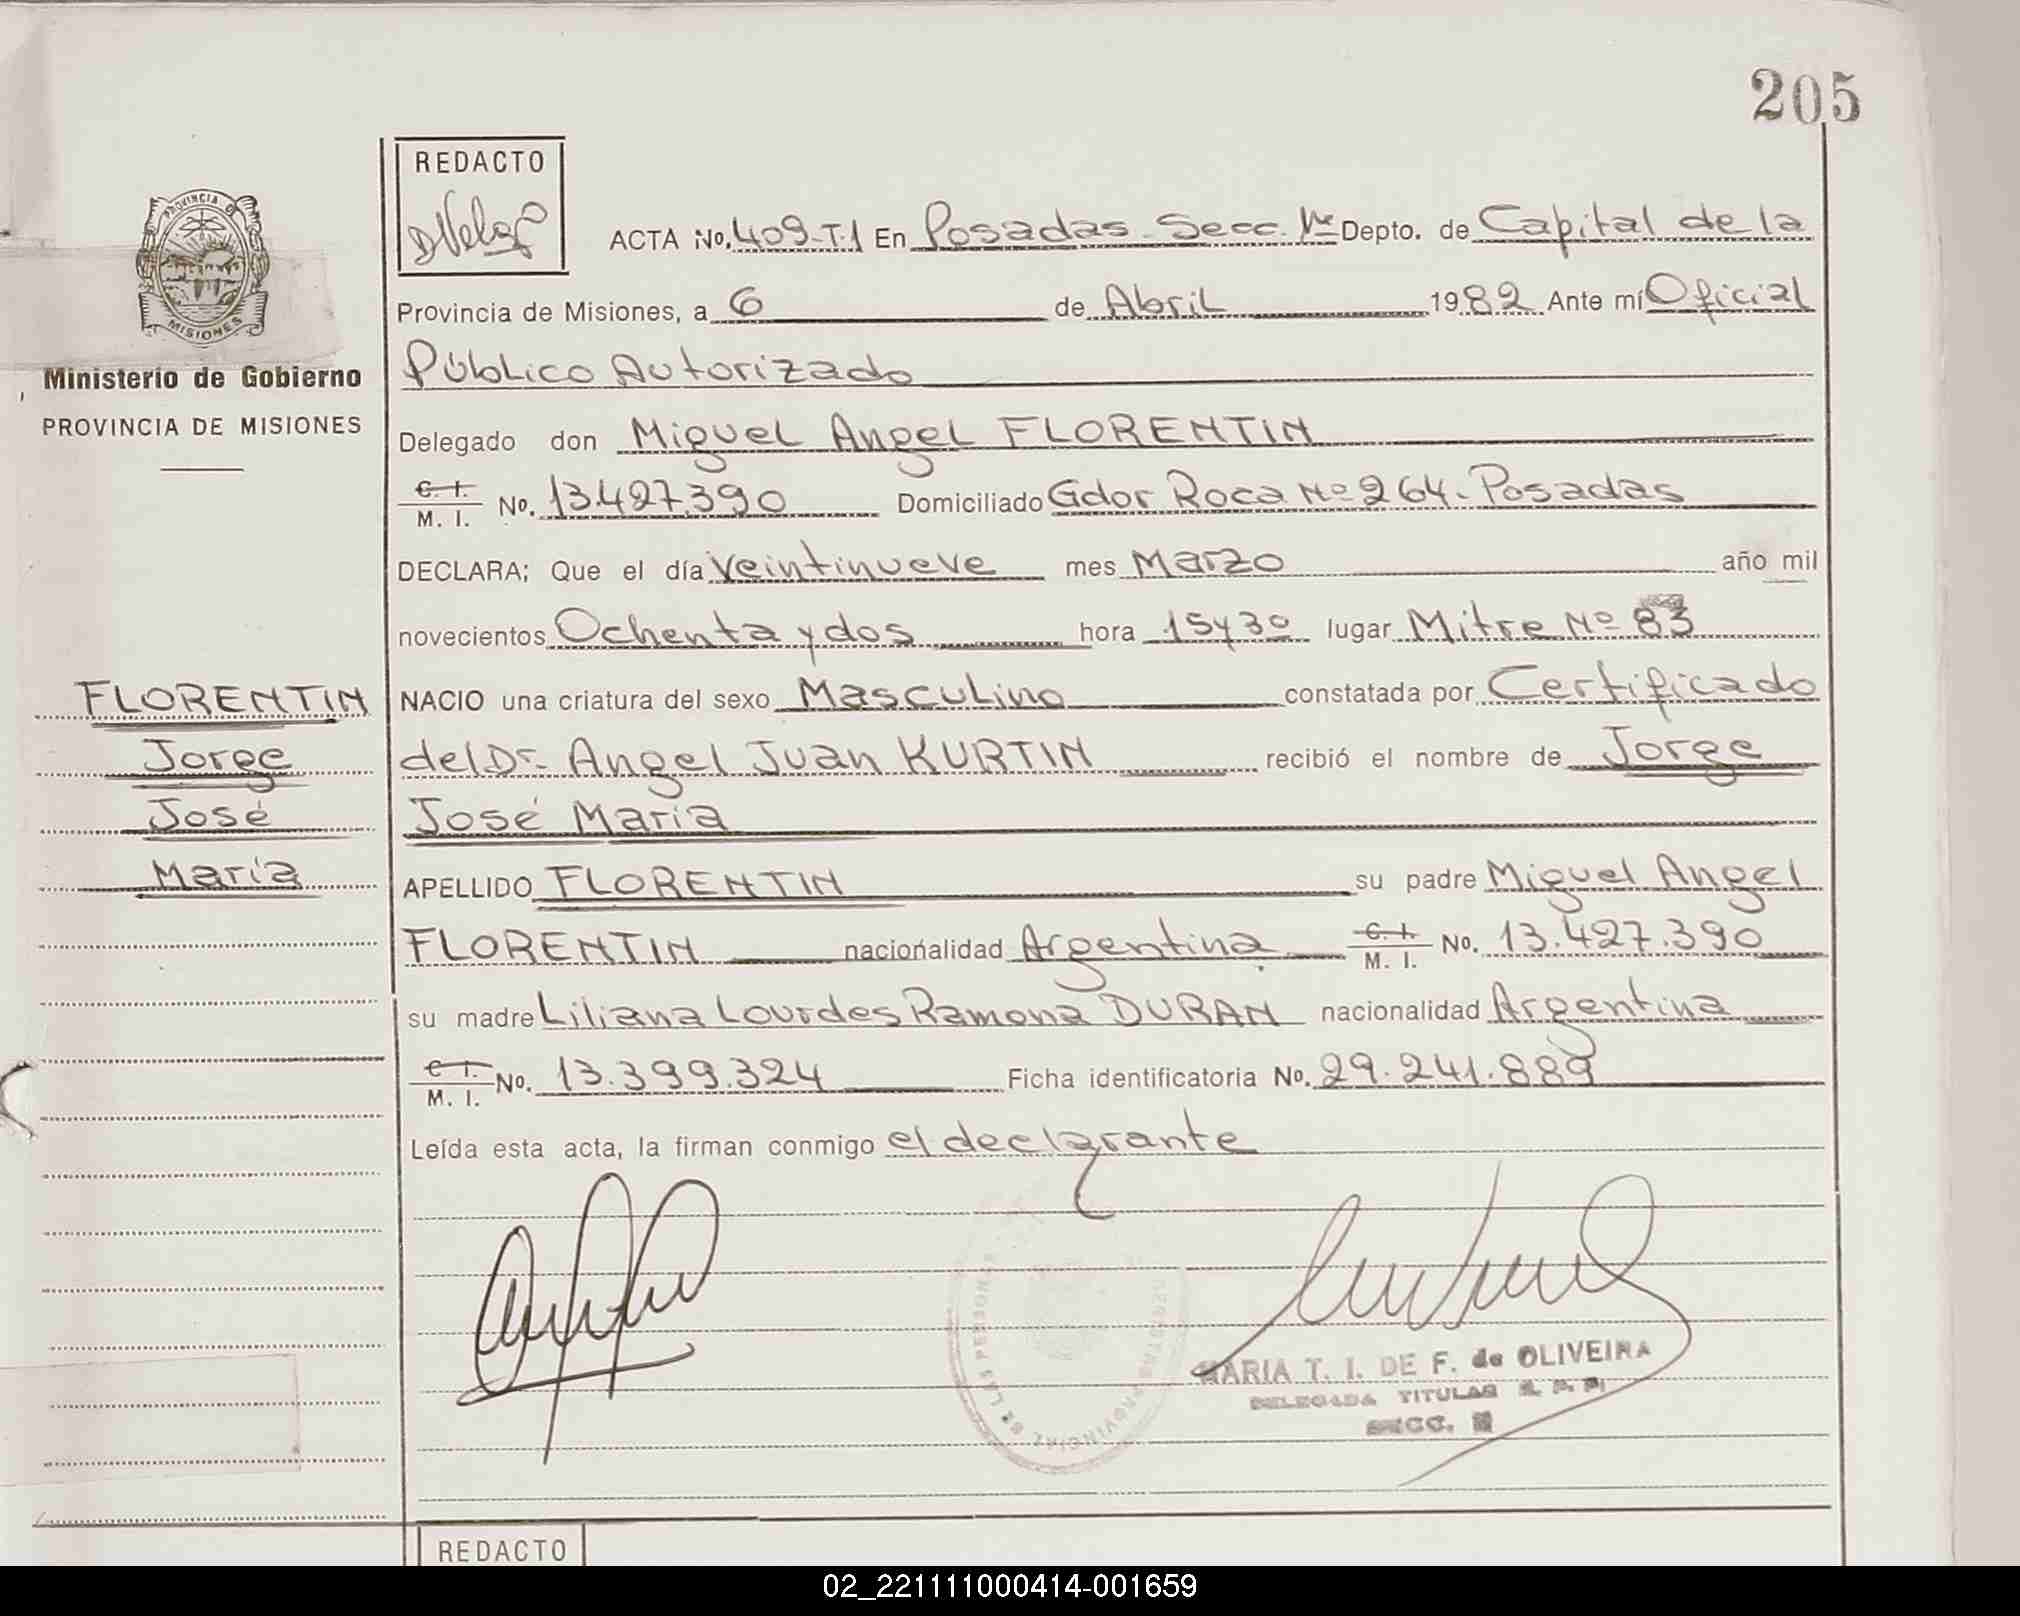 205
REDACTO
PROVINCIA D
MISIONES
Ministerio de Gobierno
PROVINCIA DE MISIONES
ACTA No. 409-T.1 En Posadas-Secc. 1ra Depto. de Capital de la
Provincia de Misiones, a 6 de Abril 1982 Ante mí Oficial
Público Autorizado
Delegado don Miguel Angel FLORENTIN
C. I.
M. I. No. 13.427.390 Domiciliado Gdor Roca Nº 264-Posadas
DECLARA; Que el día veintinueve mes Marzo año mil
novecientos Ochenta y dos hora 15 y 30 lugar Mitre Nº 83
FLORENTIN
Jorge
José
María
NACIO una criatura del sexo Masculino constatada por Certificado
del Dr. Angel Juan KURTIN recibió el nombre de Jorge
José María
APELLIDO FLORENTIN su padre Miguel Angel
FLORENTIN nacionalidad Argentina C. I.
M. I. No. 13.427.390
su madre Liliana Lourdes Ramona DURAN nacionalidad Argentina
C. I.
M. I. No. 13.399.324 Ficha identificatoria No. 29.241.889
Leída esta acta, la firman conmigo el declarante
MARIA T. I. DE F. de OLIVEIRA
DELEGADA TITULAR R. P. P.
SECC.
REDACTO
02_221111000414-001659